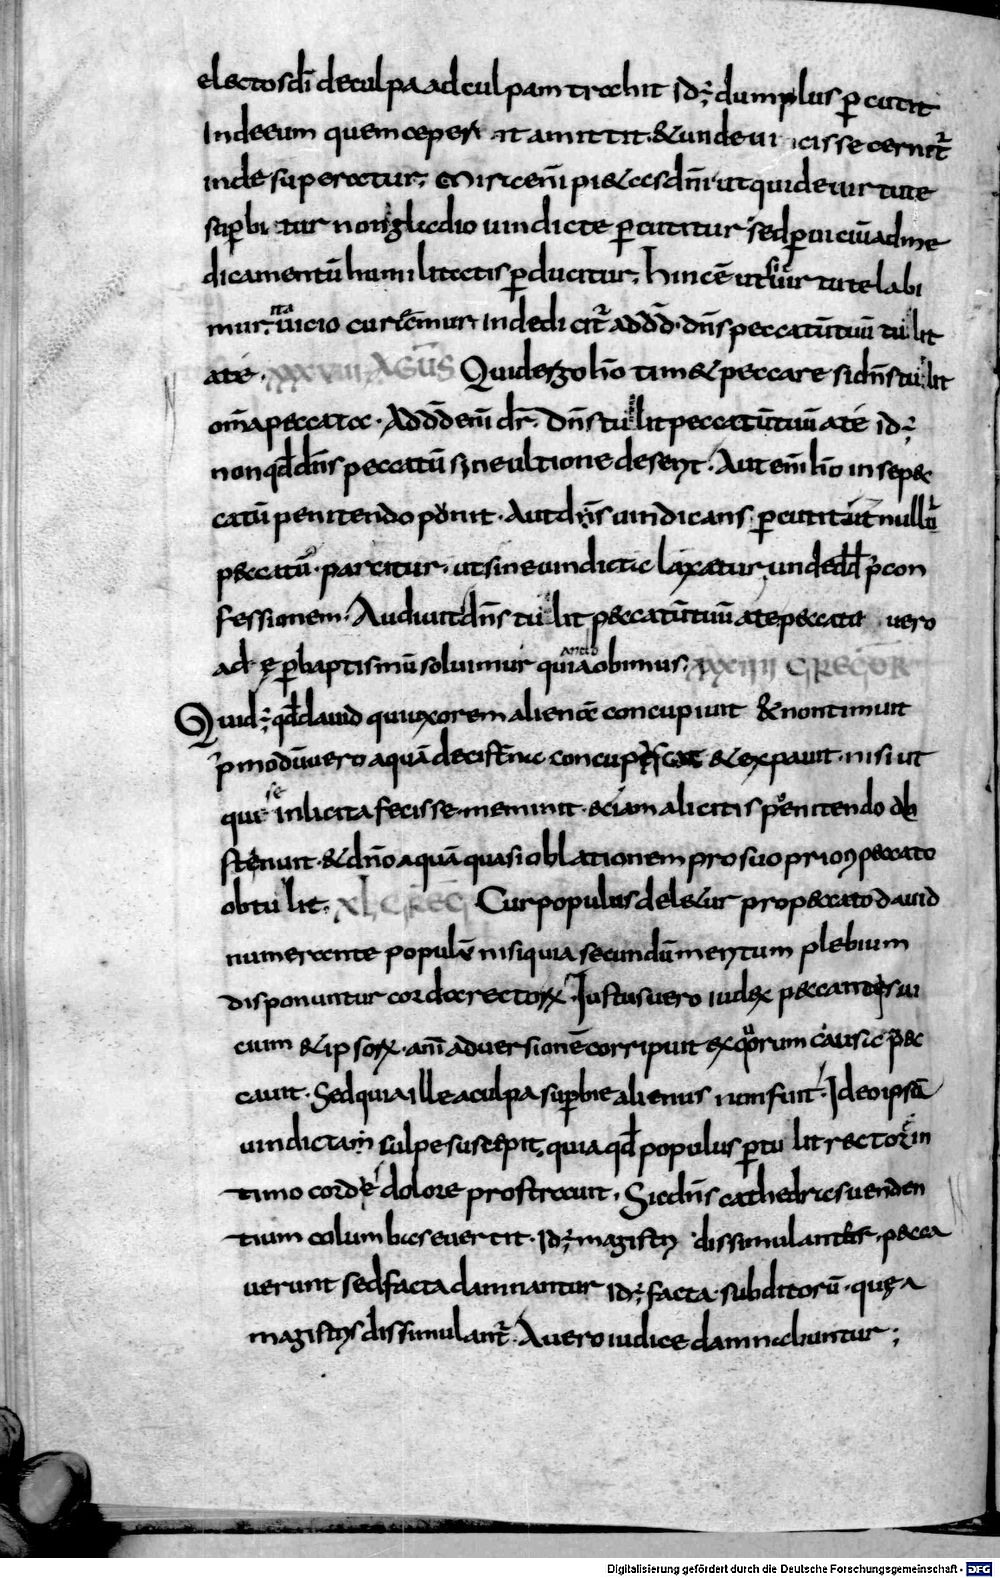 electos dī deculpa ad culpam trahit id ÷ dum plus ꝑcutit
Inde eum quem ceperat amittit. & unde ui icisse cernit̃
inde superatur; Misericem̄ pi& as dn̄i ut qui deuirtute
suꝑbi tur non gladio uindicte ꝑcutitur sed ꝑ uiciū ad me
dicamentū humilitatis ꝑducitur; hinc ē ut siuir tute labi
mur. ita uicio curemur Inde dicit̃ ad dd̄. dn̄s peccatū tuū tulit
a te. XXXVIII AGUS Quid ergo hō tim& peccare si dn̄s tulit
om̄a peccata. Ad dd̄ em̄ dr̄. Dn̄s tulit peccatū tuū a te id ÷
non qd̄ dn̄s peccatū sine ultione deserit. Aut em̄ hō in se pec
catū penitendo punit. Aut dn̄s uindicans ꝑcutit ut nullū
peccatū. parcitur. ut sine uindicta laxatur unde dd̄ p̄ con
fessionem. Audiuit dn̄s tulit peccatū tuū a te peccati uero
adę ꝑ baptismū soluimur quia obimus; XXXVIIII GREGOR
Quid ÷ qd̄ dauid qui uxorem alienā concupiuit & non timuit
p̄modū uero aquā de cisterna concup & expauit. nisi ut
qui se inlicita fecisse meminit. &iam a licitis penitendo ab
stenuit. & dn̄o aquā quasi oblationem pro suo priori peccato
obtulit. XL GREG Cur populus del&ur pro peccato dauid
numerante populū nisi quia secundū meritum plebium
disponuntur corda rectorum. Iustus uero iudex peccantis ui
cium & ipsorum. ani aduersionē corripuit ex quorum causa pec
cauit. Sed quia ille a culpa suꝑbie alienus non fuit. Ideo ipsā
uindictam culpe suscepit, quia qd̄ populus ꝑtulit rectorē in
timo cordis dolore prostrauit. Sic dn̄s cathedras uenden
tium columbas euertit. id ÷ magistri dissimulantes. pecca
uerunt sed facta damnantur id ÷ facta. subditorū. quę a
magistris dissimulant̃. A uero iudice damnabuntur;
Digitalisierung gefördert durch die Deutsche Forschungsgemeinschaft - DFG